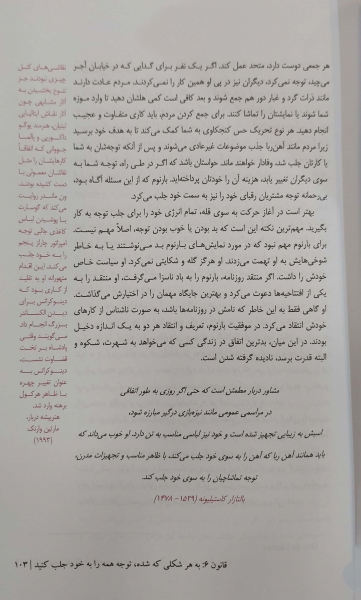 هر جمعی دوست دارد، متحد عمل کند. اگر یک نفر برای گدایی که در خیابان آجر
می‌چید، توجه نمی‌کرد، دیگران نیز در پی او همین کار را نمی‌کردند. مردم عادت دارند
مانند ذرات گرد و غبار دور هم جمع شوند و بعد کافی است کمی هلشان دهید تا وارد موزه
شما شوند یا نمایشتان را تماشا کنند. برای جمع کردن مردم، باید کاری متفاوت و عجیب
انجام دهید. هر نوع تحریک حس کنجکاوی به شما کمک می‌کند تا به هدف خود برسید
زیرا مردم مانند آهن‌ربا جذب موضوعات غیرعادی می‌شوند و پس از آنکه توجه‌شان به شما
یا کارتان جلب شد، وفادار خواهند ماند. حواستان باشد که اگر در طی راه، توجه شما به
سوی دیگران تغییر یابد، هزینه آن را خودتان پرداخته‌اید. بارنوم که از این مسئله آگاه بود،
بی‌رحمانه توجه مشتریان رقبای خود را نیز به سمت خود جلب می‌کرد.
بهتر است در آغاز حرکت به سوی قله، تمام انرژی خود را برای جلب توجه به کار
بگیرید. مهم‌ترین نکته این است که بد بودن یا خوب بودن توجه، اصلاً مهم نیست.
برای بارنوم مهم نبود که در مورد نمایش‌های بارنوم بد می‌نوشتند یا به خاطر
شوخی‌هایش به او تهمت می‌زدند. او هرگز گله و شکایتی نمی‌کرد. او سیاست خاص
خودش را داشت. اگر منتقد روزنامه، بارنوم را به باد ناسزا می‌گرفت، او منتقد را به
یکی از افتتاحیه‌ها دعوت می‌کرد و بهترین جایگاه مهمان را در اختیارش می‌گذاشت.
او گاهی فقط به این خاطر که نامش در روزنامه‌ها باشد، به صورت ناشناس از کارهای
خودش انتقاد می‌کرد. در موفقیت بارنوم، تعریف و انتقاد هر دو به یک اندازه دخیل
بودند. در این میان، بدترین اتفاق در زندگی کسی که می‌خواهد به شهرت، شکوه و
البته قدرت برسد، نادیده گرفته شدن است.
مشاور دربار مطمئن است که حتی اگر روزی به طور اتفاقی
در مراسمی عمومی مانند نیزه‌بازی درگیر مبارزه شود،
اسبش به زیبایی تجهیز شده است و خود نیز لباسی مناسب به تن دارد. او خوب می‌داند که
باید همانند آهن ربا که آهن را به سوی خود جلب می‌کند، با ظاهر مناسب و تجهیزات مدرن،
توجه تماشاچیان را به سوی خود جلب کند.
بالتازار کاستیلیونه (۱۵۲۹ - ۱۴۷۸)
نقاشی‌های کتل
چیزی نبودند جز
نوع بخشیدن به
آثار مشابهی چون
آثار نقاش ایتالیایی
جوانی که اتفاقاً
کارهایش را مثل
نقاشان معمولی با
دست کشیده بودند.
می‌کند که
با پوشیدن لباس
کاغذی جالب توجه
امپراتور چارلز پنجم
را به خود جلب
می‌کند. این اقدام
از کاری بود که
دینوکراتس برای
دیدن الکساندر
بزرگ انجام داد.
می‌گویند وقتی
پادشاه بر تخت
قضاوت نشست،
دینوکراتس به
عنوان تغییر چهره
با ظاهر هرکول
برهنه وارد شد.
هنرپیشه دربار،
مارتین وارنک
(۱۹۹۳)
قانون ۶: به هر شکلی که شده، توجه همه را به خود جلب کنید | ۱۰۳